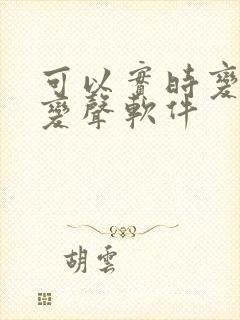 可以實時變
變聲軟件
胡雲